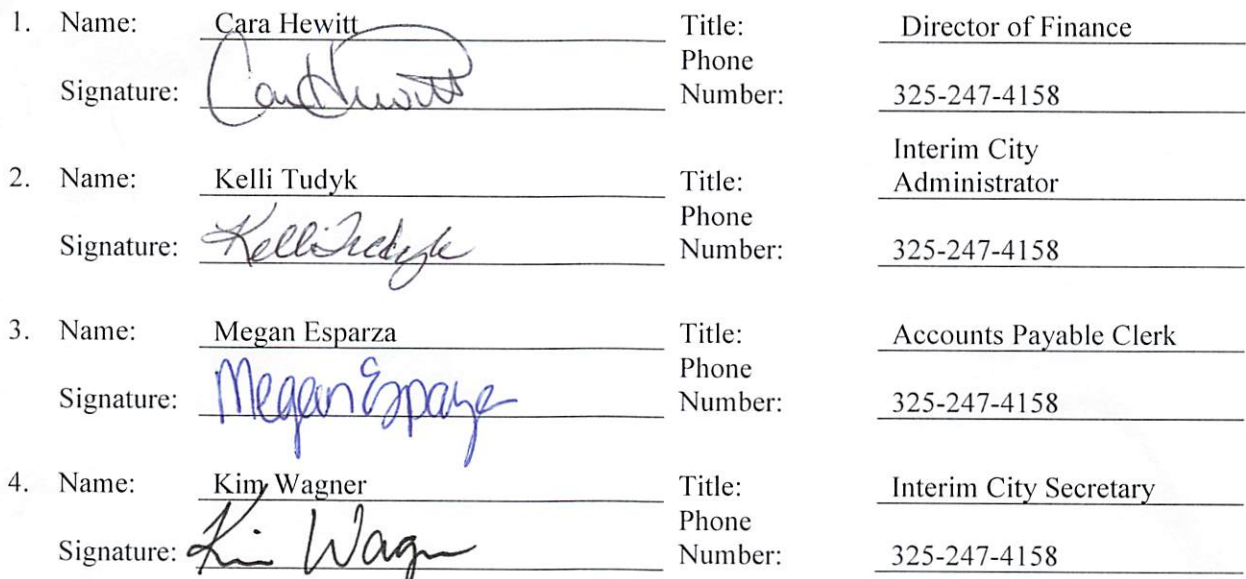 1. Name: Cara Hewitt Title: Director of Finance
Phone
Signature: Cara Hewitt Number: 325-247-4158
Interim City
2. Name: Kelli Tudyk Title: Administrator
Phone
Signature: Kelli Tudyk Number: 325-247-4158
3. Name: Megan Esparza Title: Accounts Payable Clerk
Phone
Signature: Megan Esparza Number: 325-247-4158
4. Name: Kim Wagner Title: Interim City Secretary
Phone
Signature: Kim Wagner Number: 325-247-4158